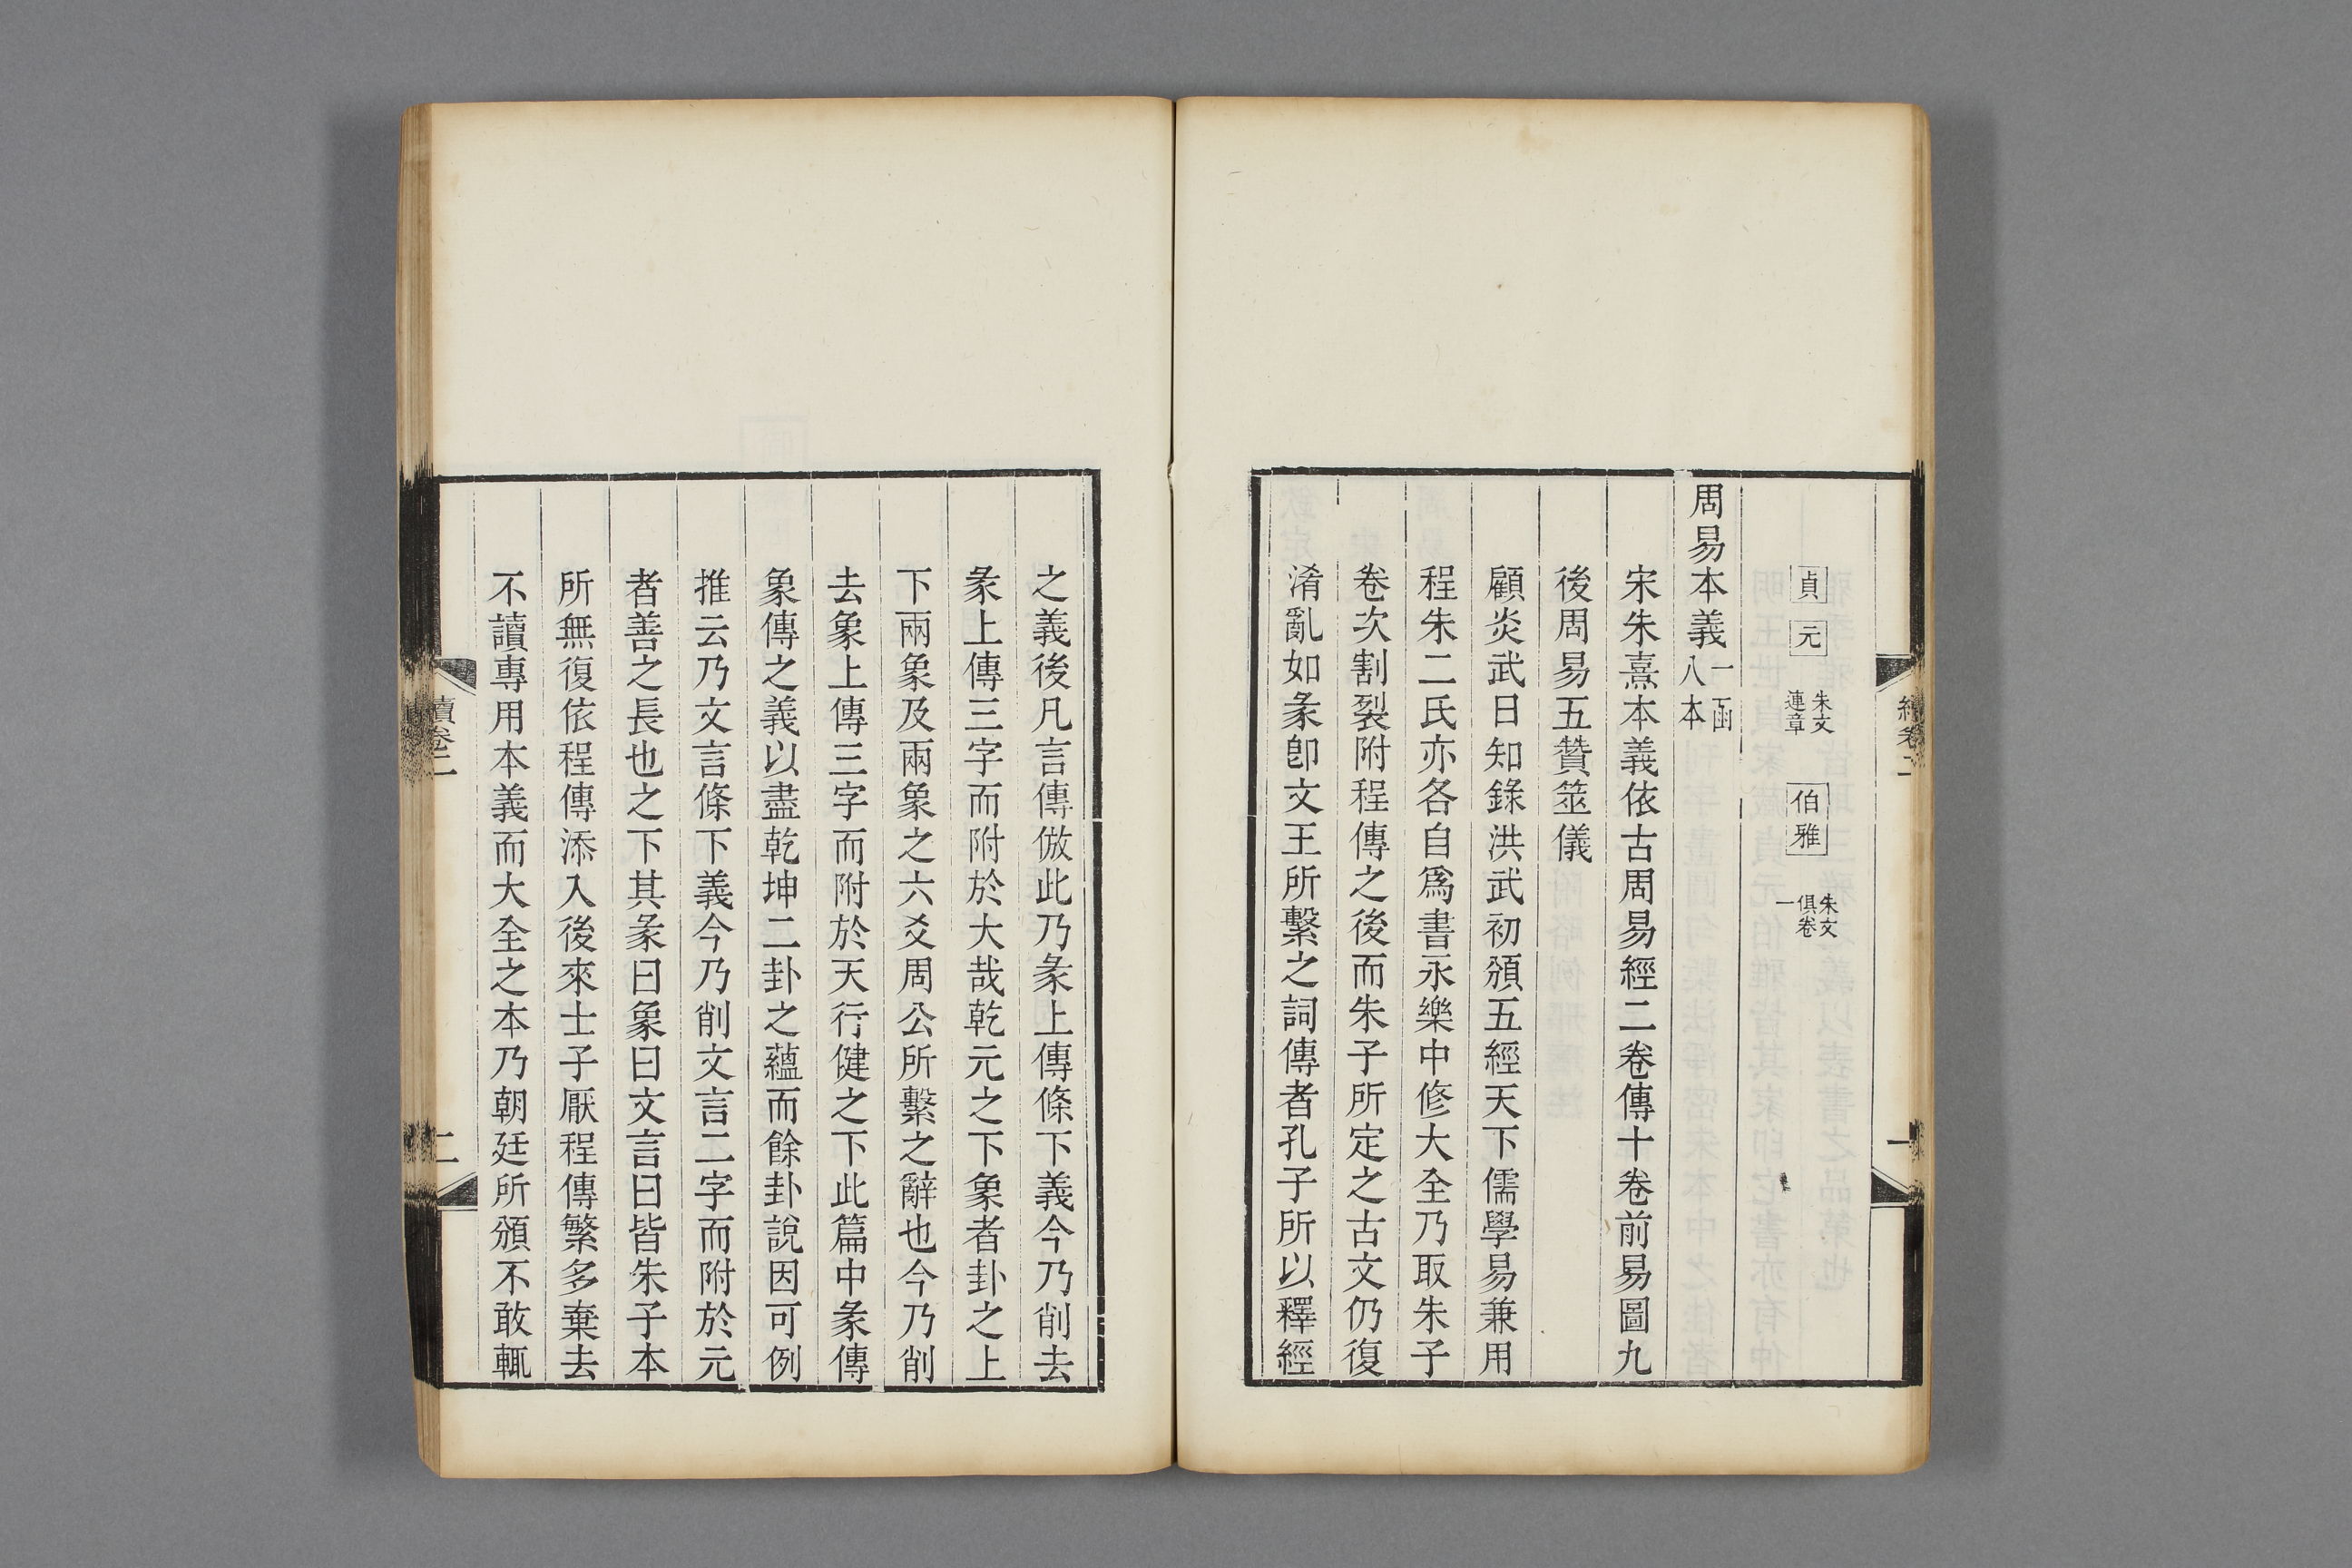 貞 元 朱文連章 伯雅 朱文俱卷一
周易本義 一函八本
宋朱熹本義依古周易經二卷傳十卷前易圖九
後周易五贊筮儀
顧炎武日知錄洪武初頒五經天下儒學易兼用
程朱二氏亦各自爲書永樂中修大全乃取朱子
卷次割裂附程傳之後而朱子所定之古文仍復
淆亂如彖卽文王所繫之詞傳者孔子所以釋經
之義後凡言傳倣此乃彖上傳條下義今乃削去
彖上傳三字而附於大哉乾元之下象者卦之上
下兩象及兩象之六爻周公所繫之辭也今乃削
去象上傳三字而附於天行健之下此篇中彖傳
象傳之義以盡乾坤二卦之蘊而餘卦說因可例
推云乃文言條下義今乃削文言二字而附於元
者善之長也之下其彖曰象曰文言曰皆朱子本
所無復依程傳添入後來士子厭程傳繁多棄去
不讀專用本義而大全之本乃朝廷所頒不敢輒
續卷二
二